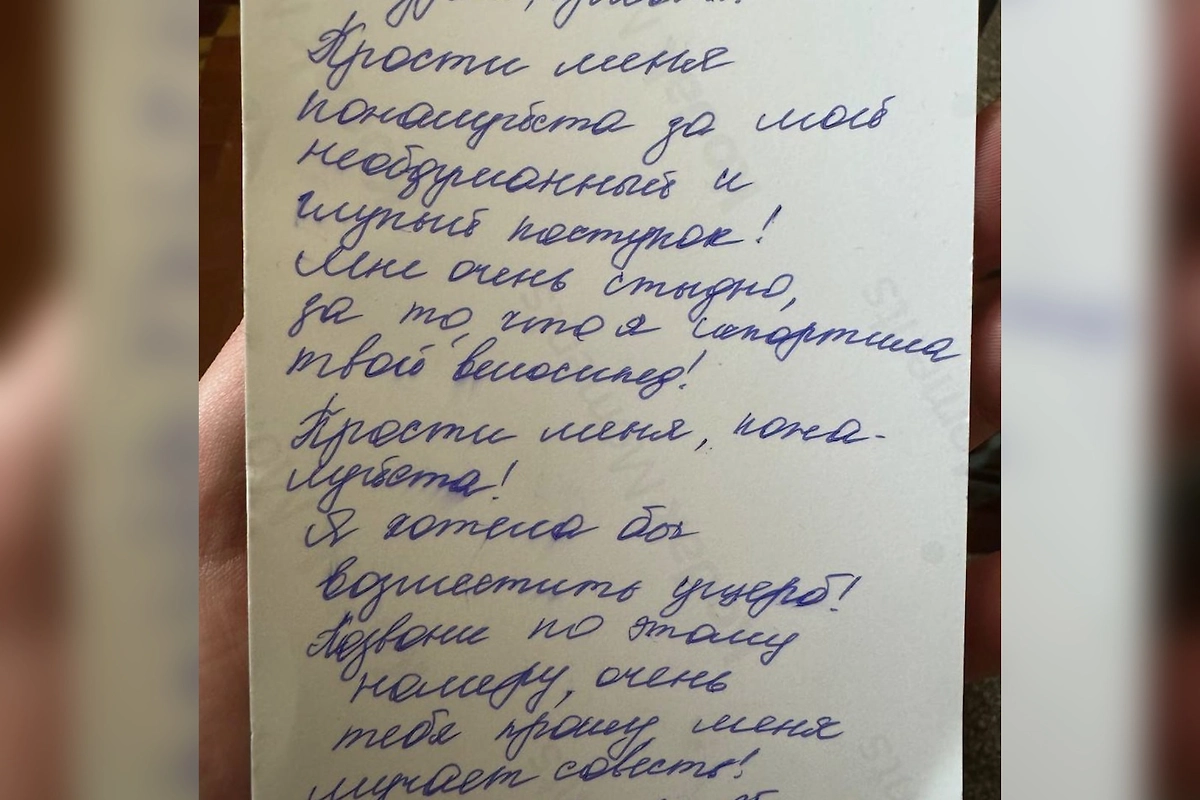 Прости меня
пожалуйста за мой
необдуманный и
глупый поступок!
Мне очень стыдно,
за то, что я испортила
твой велосипед!
Прости меня, пожа-
луйста!
Я хотела бы
возместить ущерб!
Позвони по этому
номеру, очень
тебя прошу меня
мучает совесть!